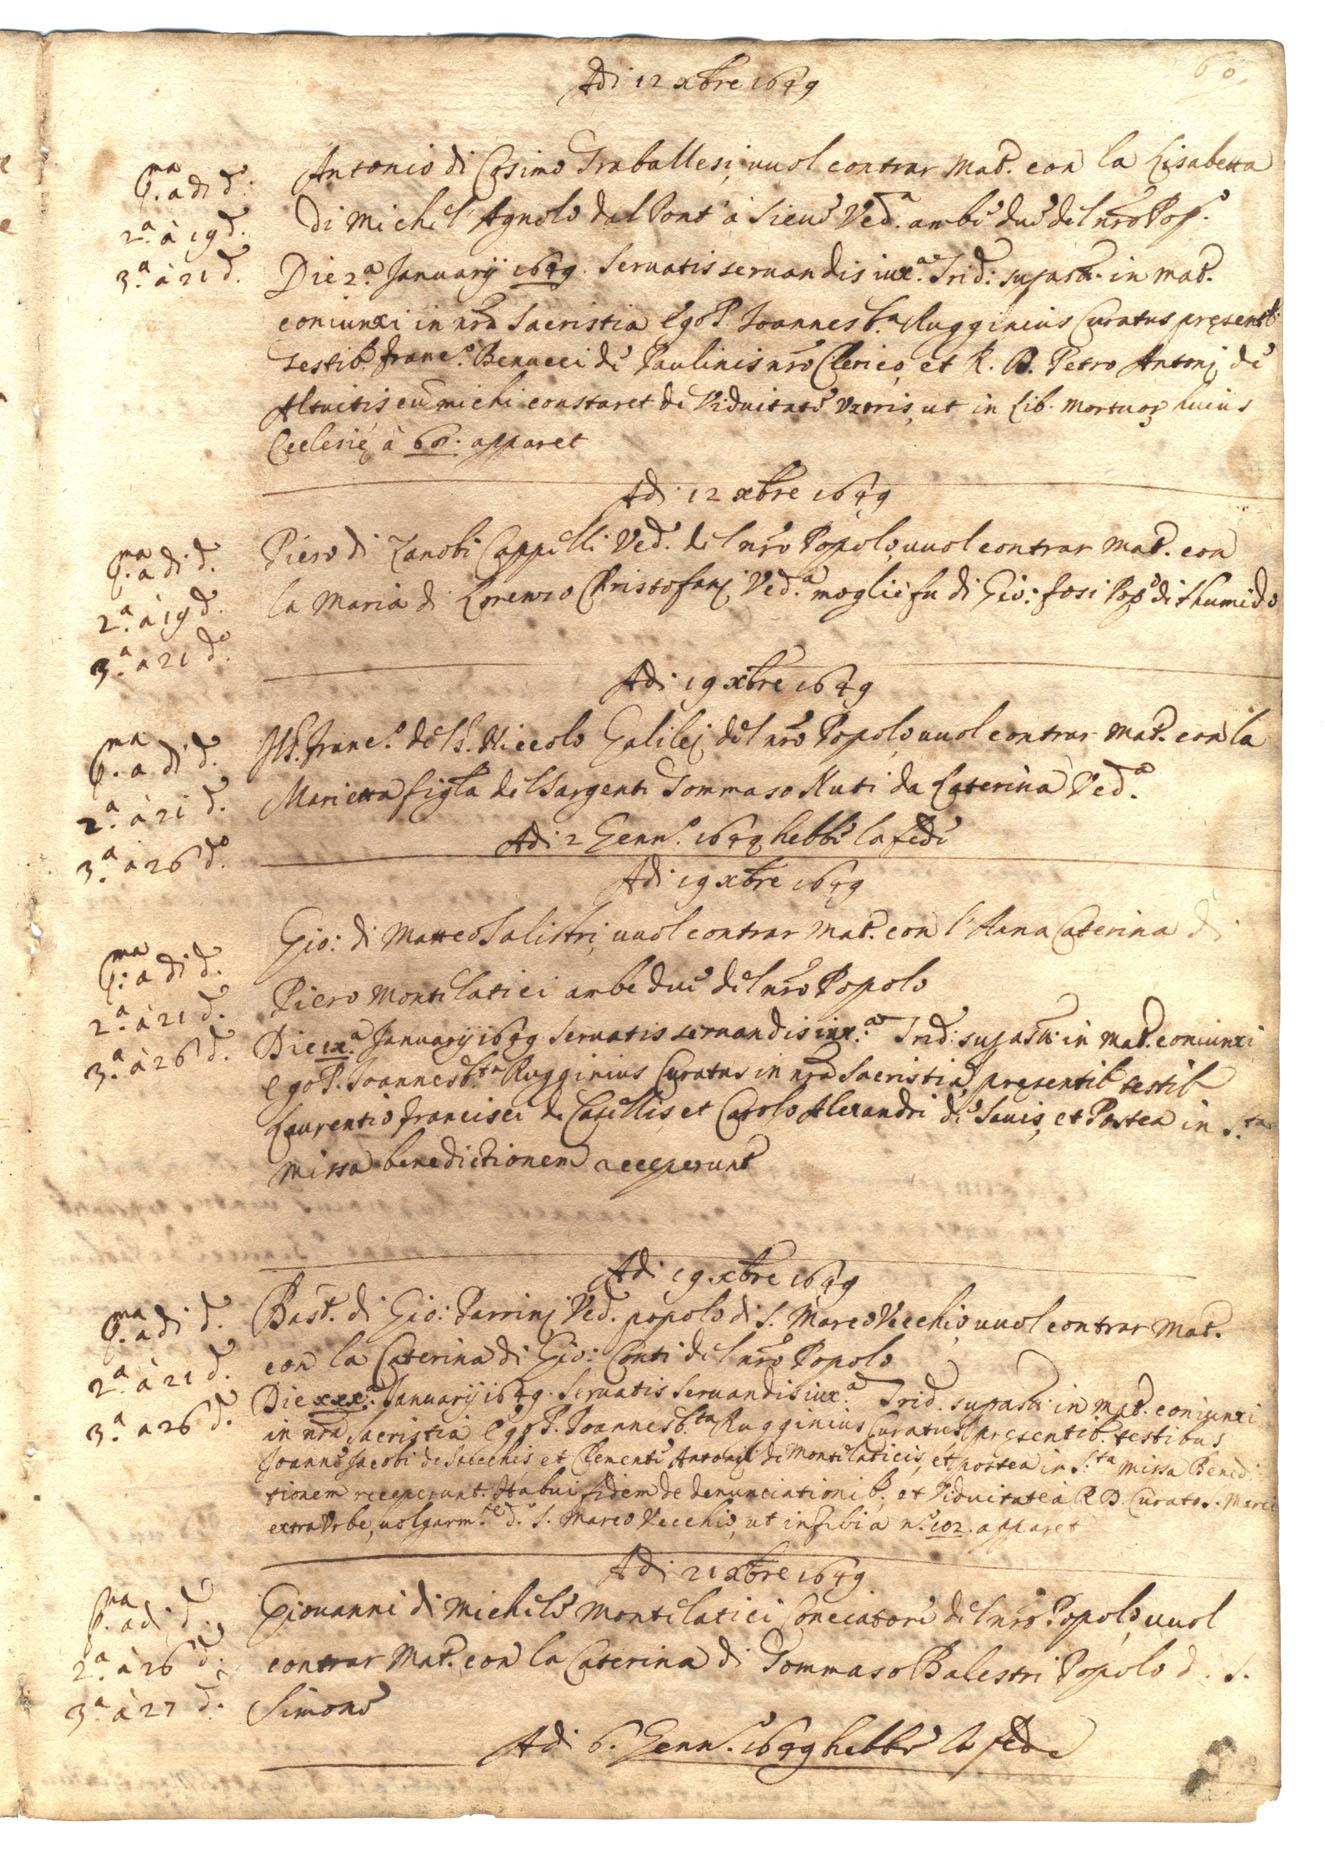 60.
Adi 12 xbre 1649
Antonio di Cosimo Traballesi, vuol contrar Mat.º con la Lisabetta
P.ma a di d.º
di Michel' Agnolo dal Pont' à Sieve Ved.a ambi due del nro Pop.º
2.a à 19 d.º
Die 2.a Januarij 1649. Servatis servandis iux.a Trid: supast: in mat.º
3.a à 21 d.º
coniunxi in nra Sacristia Ego P. Joannes b.a Rugginius Curatus presentib:
Testib. Franc.º Benucci de Paulinis nro Clerico, et R. D. Petro Antonj de
Altuitis cum michi constaret de Viduitate Uxoris, ut in Lib. Mortuor huius
Ecclesie à 60: apparet
Adi 12 xbre 1649
Piero di Zanobi Cappelli Ved.º del nro Popolo, vuol contrar Mat.º con
P.ma a di d.º
la Maria di Lorenzo Christofanj Ved.a moglie fu di Gio: fosi Pop.º di S. humido
2.a à 19 d.º
3.a à 21 d.º
Adi 19 xbre 1649
Il S. Franc.º del S. Niccolo Galilej del nro Popolo, vuol contrar Mat.º con la
P.ma a di d.º
Marietta figla del Sargente Tommaso Nuti da Laterina Ved.a
2.a à 21 d.º
Adi 2 Genn.º 1649 hebbe la fede
3.a à 26 d.º
Adi 19 xbre 1649
Gio: di Matteo Salistri, vuol contrar Mat.º con l'Anna Caterina di
P.ma a di d.º
Piero Montelatici ambe due del nro Popolo
2.a à 21 d.º
Die ix.a Januarij 1649 Servatis servandis iux.a Trid: supast: in Mat.º coniunxi
3.a à 26 d.º
Ego P. Joannes b.ta Rugginius Curatus in nra Sacristia, presentib testib
Laurentio francisci de Casellis et Carolo Alexandri de Savis, et Postea in S.ta
missa benedictionem acceperunt
Adi 19 xbre 1649
Bast.º di Gio: Parrinj Ved.º popolo di S. Marco Vecchio, vuol contrar Mat.º
P.ma a di d.º
con la Caterina di Gio: Conti del nro Popolo
2.a à 21 d.º
Die xxx.a Januarij 1649. Servatis Servandis iux.a Trid. supast: in mat.º coniunxi
3.a a 26 d.º
in nra Sacristia Ego P. Joannes b.ta Rugginius Curatus, presentib. testibus
Joanne Jacobi de Sacchis et Clemente Antonij de Montelaticis, et postea in S.ta missa Benedi
tionem receperunt. Habui fidem de denunciationib. et Viduitate à R. D. Curato S. Marci
extra Urbe, volgarm.te d.º S. Marco Vecchio, ut in filbia n.º 102. apparet
Adi 21 xbre 1649
Giovanni di Michele Montelatici del nro Popolo, vuol
P.ma a di d.º
contrar Mat.º con la Caterina di Tommaso Balestri Popolo d. S.
2.a à 26 d.º
Simone
3.a à 27 d.º
Adi 6. Genn.º 1649 hebbe la fede